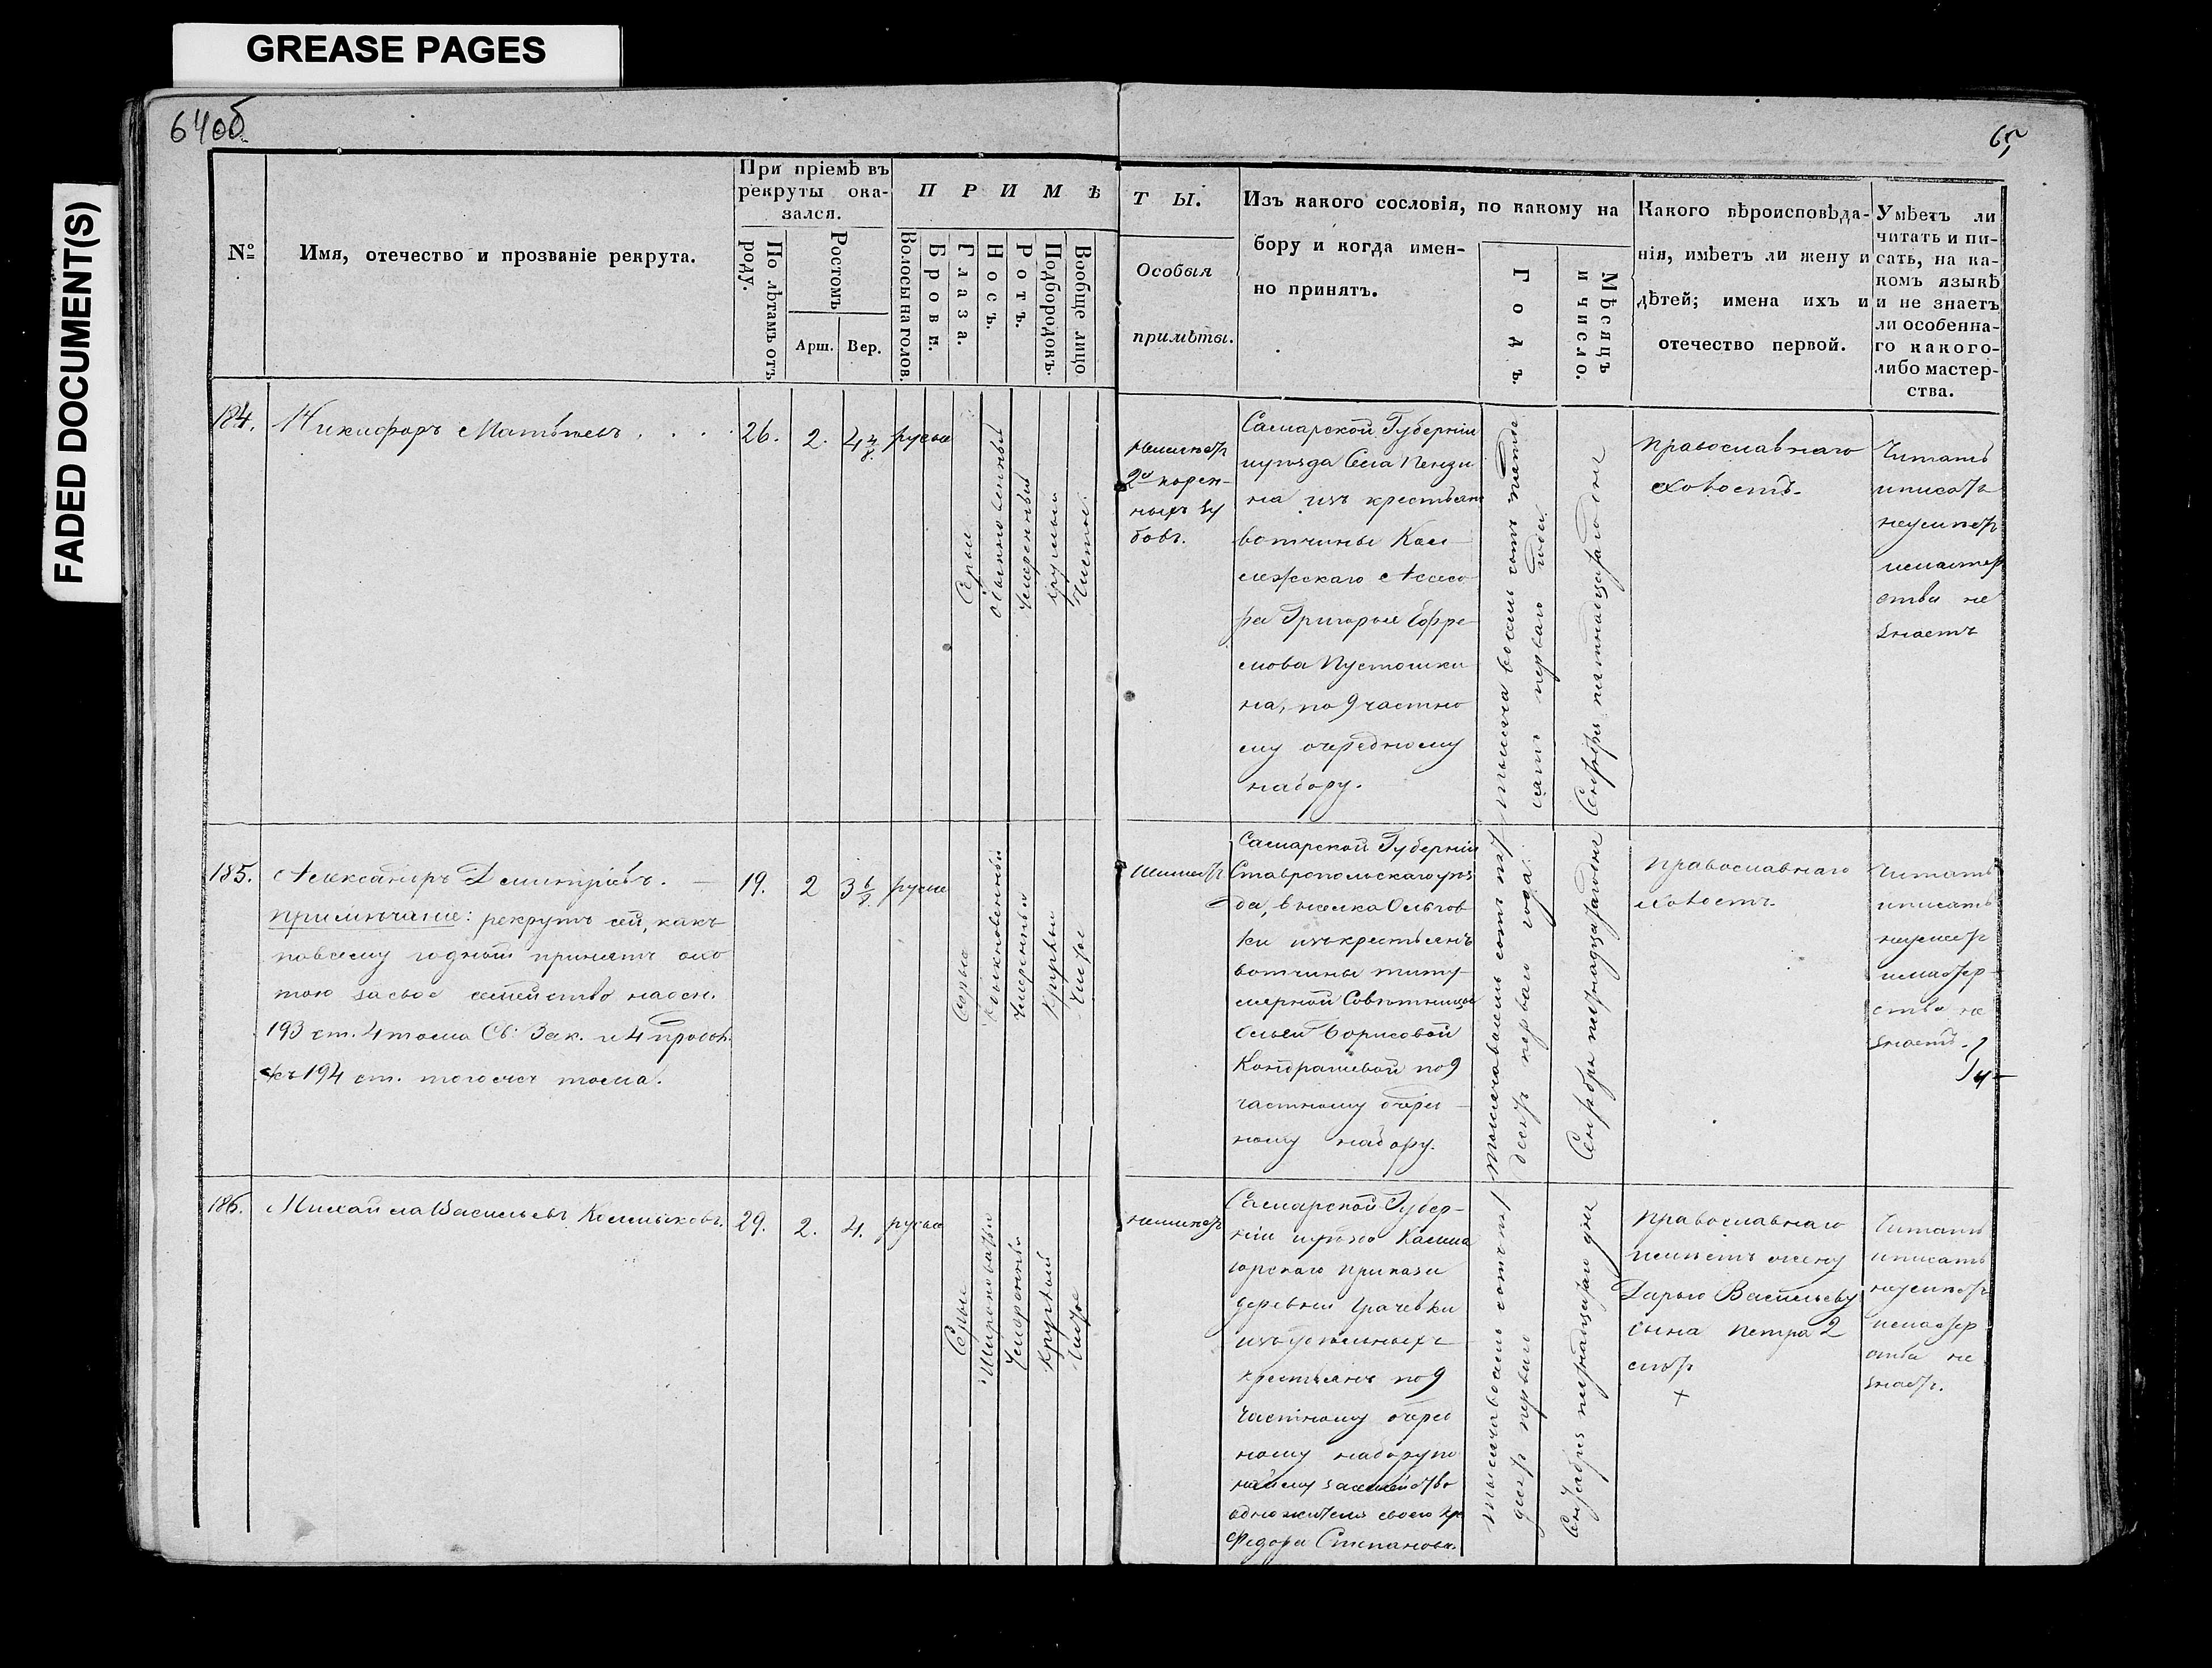 GREASE PAGES
FADED DOCUMENT(S)
64об.
65
№
Имя, отечество и прозваніе рекрута.
При пріемѣ въ
рекруты ока-
зался.
По лѣтамъ отъ
роду.
Ростомъ
Арш.
Вер.
П Р И М Ѣ
Волосы на голов.
Брови.
Глаза.
Носъ.
Ротъ.
Подбородокъ.
Вообще лицо
Т Ы.
Особыя
примѣты.
Изъ какого сословія, по какому на
бору и когда имен-
но принятъ.
Годъ.
Мѣсяцъ
и число.
Какого вѣроисповѣда-
нія, имѣетъ ли жену и
дѣтей; имена ихъ и
отечество первой.
Умѣетъ ли
читать и пи-
сать, на ка-
комъ языкѣ
и не знаетъ
ли особенна-
го какого-
либо мастер-
ства.
184.
Никифоръ Матвѣевъ . . .
26.
2.
4 4/8.
русые
Серые
обыкновенный
умеренный
круглый
Чистое.
неимеетъ
2х корен-
ныхъ зу
бовъ.
Самарской Губерніи
иуезда Села Пензи
на изъ крестьянъ
вотчины Кол-
лежскаго Ассесо
ра Григорья Ефре-
мова Пустошки
на, по 9 частно
му очередному
набору.
тысяча восемь сотъ пять
десятъ перваго года
Сентября пятнадцатаго дня
Православнаго
холостъ.
Читать
иписать
неумеетъ
имастер
ства не
знаетъ
185.
Александръ Дмитріевъ. —
Примѣчаніе: рекрутъ сей, какъ
повсему годный принятъ охо
тою засвое семейство наосн.
193 ст. 4 тома Св. Зак. и 4 продол.
къ 194 ст. тогоже тома.
19.
2
3 6/8.
русые
Серые
обыкновенный
умеренный
Круглый
Чистое
Неимеетъ
Самарской Губерніи
Ставропольскаго уѣз
да, выселка Ольгов
ки изъ крестьянъ
вотчины титу-
лярной Совѣтницы
Ольги Борисовой
Кондрашевой по 9
частному очеред-
ному набору.
тысяча восемь сотъ пять
десятъ перваго года.
Сентября пятнадцатаго дня
Православнаго
холостъ.
Читать
иписать
неумеетъ
имастер-
ства не
знаетъ.
186.
Михайла Васильевъ Колмыковъ.
29.
2.
4.
русые
Серые
Широковатый
Умеренный
Круглый
Чистое
неимеетъ
Самарской Губер-
ніи иуезда
приказа
деревни Грачевки
изъ удельныхъ
крестьянъ по 9
частному очеред
ному набору по
найму засемейство
одножителя своего
Федора Степанова.
тысяча восемь сотъ пять
десятъ перваго
Сентября пятнадцатаго дня
Православнаго
имѣетъ жену
Дарью Васильеву
сына Петра 2
летъ
+
Читать
иписать
неумеетъ
имастер
ства не
знаетъ.